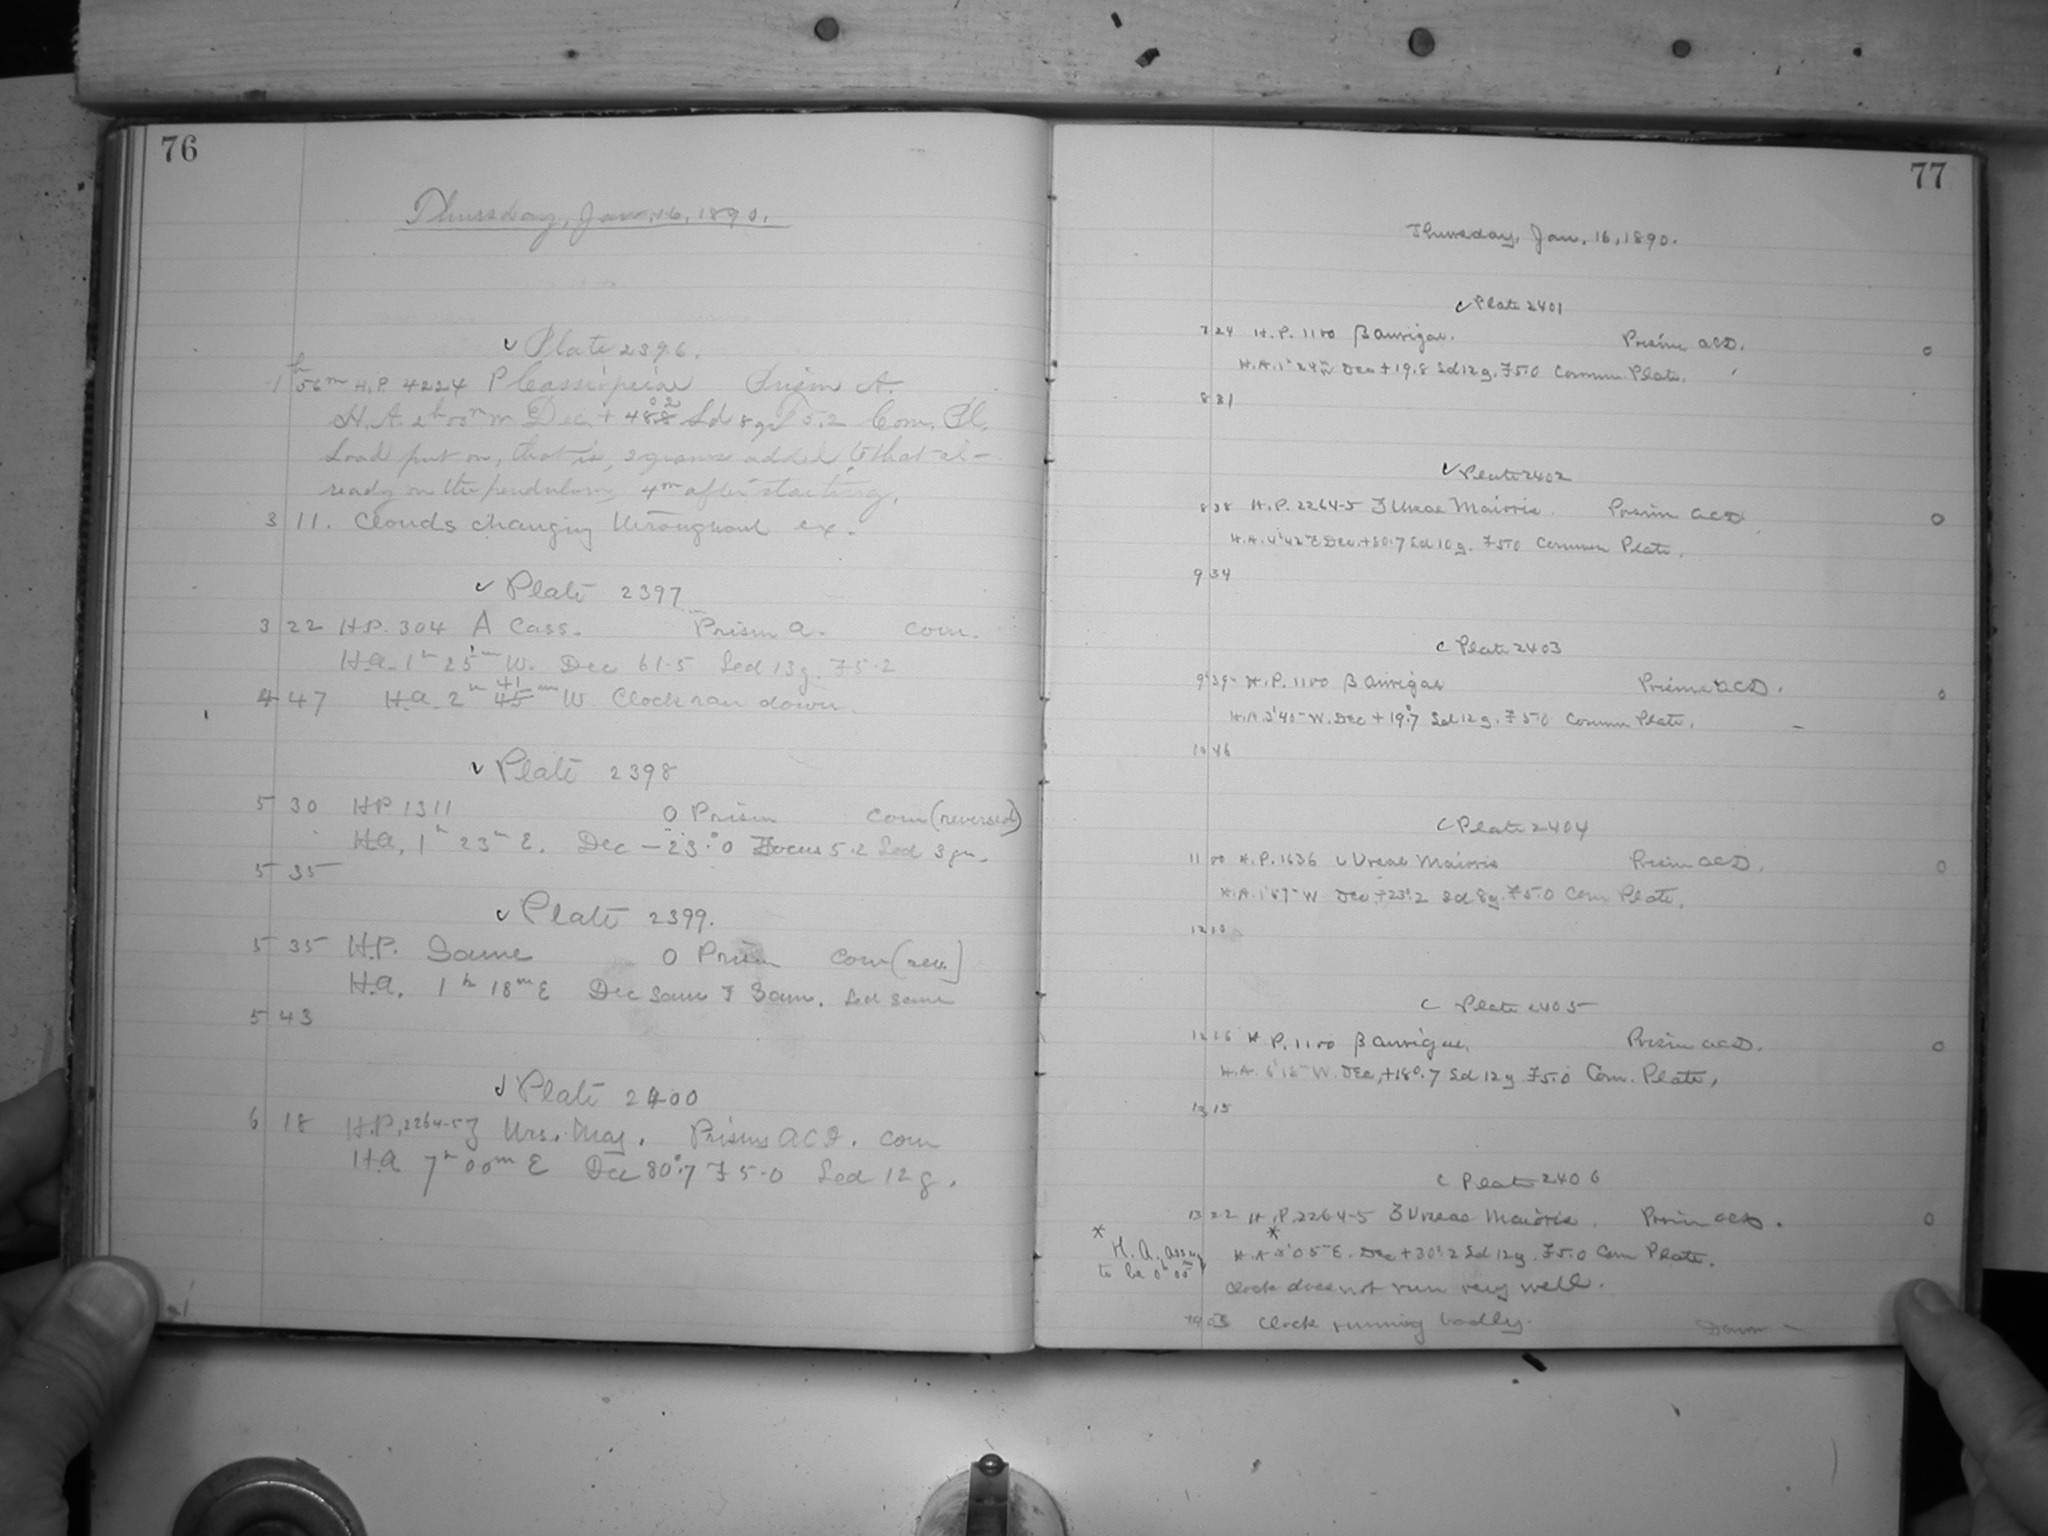 76
Thursday, Jan. 16, 1890.
Plate 2396.
1h 56m H.P. 4224 P Cassiopeiae Prism A.
H.A. 2h 00m Dec + 48.8 02 Sd 8gr F 5.2 Com. Pl.
Load put on, that is, 2 grams added to that al-
ready on the pendulum 4m after starting.
3 11. Clouds changing throughout ex.
Plate 2397
3 22 H.P. 304 A Cass. Prism a. com.
H.a. 1h 25m W. Dec 61.5 Sed 13g. F 5.2
4 47 H.a. 2h 45 41m W. Clock ran down.
Plate 2398
5 30 HP 1311 0 Prism com (reversed)
H.a. 1h 23m E. Dec -23°.0 Focus 5.2 Sed 3 gm.
5 35
Plate 2399.
5 35 H.P. Same 0 Prism com (rev.)
H.a. 1h 18m E Dec Same F Sam. Sed same
5 43
Plate 2400
6 18 H.P. 2264-5 ζ Urs. Maj. Prisms ACD. com
H.a. 7h 00m E Dec 80°.7 F 5.0 Sed 12 g.
77
Thursday, Jan. 16, 1890.
Plate 2401
7 24 H.P. 1100 β Aurigae. Prism ACD. 0
H.A. 1h 24m W Dec +19.8 Sd 12g. F5.0 Common Plate.
8 31
Plate 2402
8 38 H.P. 2264-5 ζ Ursae Maioris Prism ACD 0
H.A. 4h 42m E Dec. +80.7 Sd 10g. F5.0 Common Plate.
9 34
Plate 2403
9 39 H.P. 1100 β Aurigae Prism ACD. 0
H.A. 3h 40m W. Dec +19°.7 Sd 12g. F5.0 Common Plate.
10 46
Plate 2404
11 00 H.P. 1636 υ Ursae Maioris Prism ACD. 0
H.A. 1h 57m W Dec. +23°.2 Sd 8g. F5.0 Com Plate.
12 10
Plate 2405
12 15 H.P. 1100 β Aurigae. Prism ACD. 0
H.A. 6h 15m W. Dec, +18°.7 Sd 12g F5.0 Com. Plate.
13 15
Plate 2406
13 22 H.P. 2264-5 ζ Ursae Maioris. Prism ACD. 0
* H.A. assu
to be 0h 00m
H.A.* 05m E. Dec +30°.2 Sd 12g. F5.0 Com Plate.
Clock does not run very well.
14 05 Clock running badly. Dawn